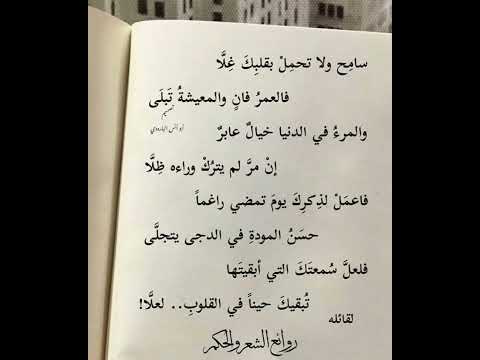 سامِح ولا تحمِلْ بقلبِكَ غِلَّا
فالعمرُ فانٍ والمعيشةُ تَبلَى
والمرءُ في الدنيا خيالٌ عابرٌ
إنْ مرَّ لم يترُكْ وراءه ظِلَّا
فاعمَلْ لذِكرِكَ يومَ تمضي راغماً
حسَنُ المودةِ في الدجى يتجلَّى
فلعلَّ سُمعتَكَ التي أبقيتَها
تُبقيكَ حيناً في القلوبِ.. لعلَّا!
لقائله
روائع الشعر والحكم